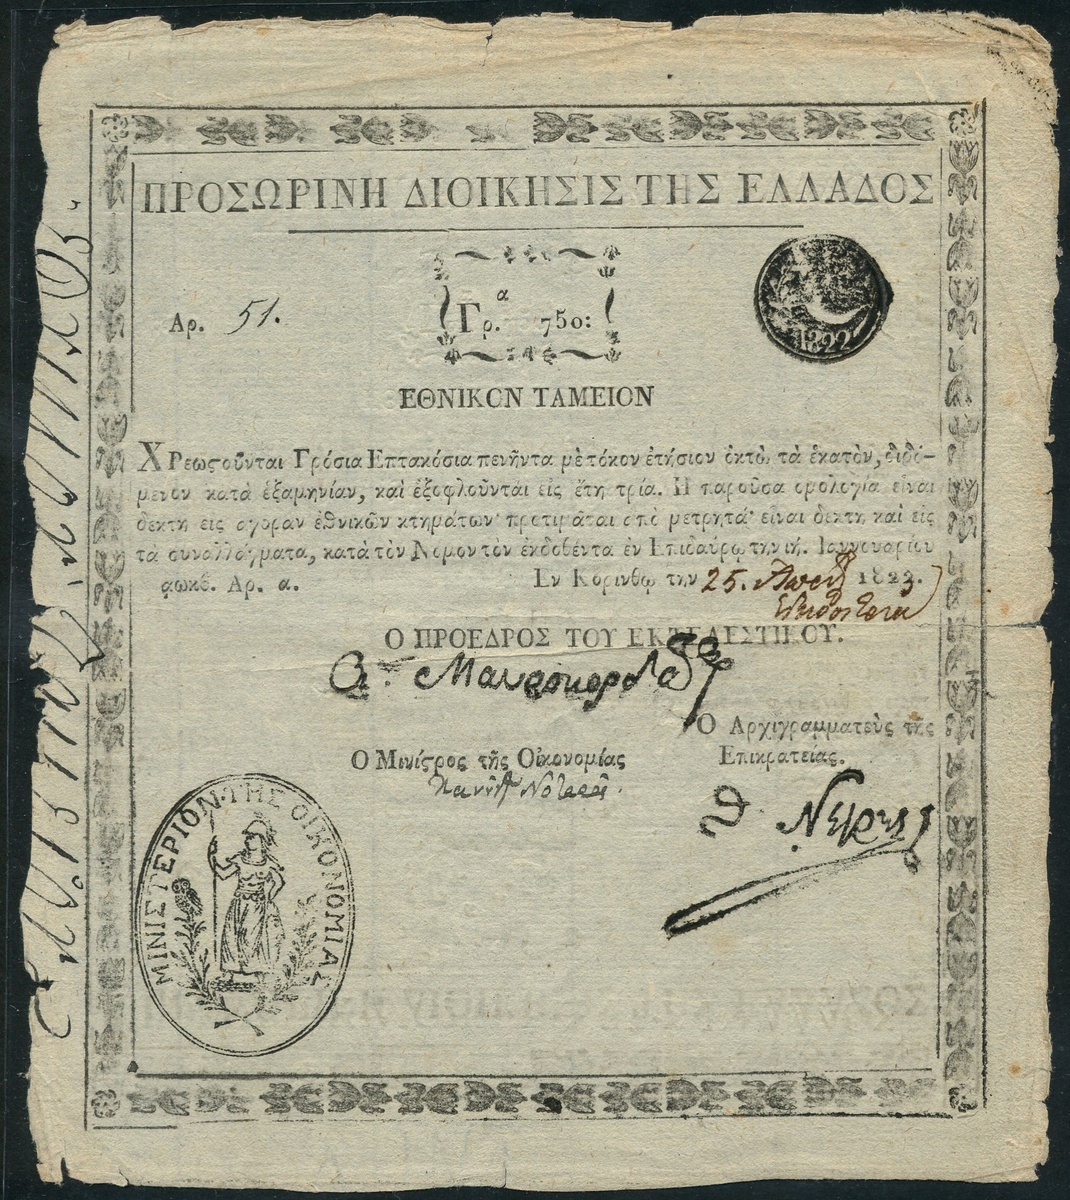 ΠΡΟΣΩΡΙΝΗ ΔΙΟΙΚΗΣΙΣ ΤΗΣ ΕΛΛΑΔΟΣ
Αρ. 51.
Γρ.α 750:
1822
ΕΘΝΙΚΟΝ ΤΑΜΕΙΟΝ
ΧΡεωϛοῦνται Γρόσια Επτακόσια πενῆντα μὲ τόκον ἐτήσιον ὀκτὼ τὰ ἑκατὸν, διδό-
μενον κατὰ ἑξαμηνίαν, καὶ ἐξοφλοῦνται εἰς ἔτη τρία. Η παροῦσα ομολογία εἶναι
δεκτὴ εις αγορὰν ἐθνικῶν κτημάτων· προτιμᾶται απὸ μετρητά· εἶναι δεκτὴ καὶ εἰς
τὰ συναλλάγματα, κατὰ τὸν Νομον τὸν ἐκδοθέντα ἐν Επιδαύρῳ την ιή. Ιαννουαρίου
αωκβ. Αρ. α. Εν Κορίνθῳ την 25. Απριλ 1823.
Ο ΠΡΟΕΔΡΟΣ ΤΟΥ ΕΚΤΕΛΕΣΤΙΚΟΥ.
Α. Μαυροκορδάτος
Ο Αρχιγραμματεὺς τῆς
Επικρατείας.
Ο Μινίϛρος τῆς Οἰκονομίας
Πανοῦτς Νοταρᾶς.
Θ Νέγρης
ΜΙΝΙΣΤΕΡΙΟΝ·ΤΗΣ ΟΙΚΟΝΟΜΙΑΣ